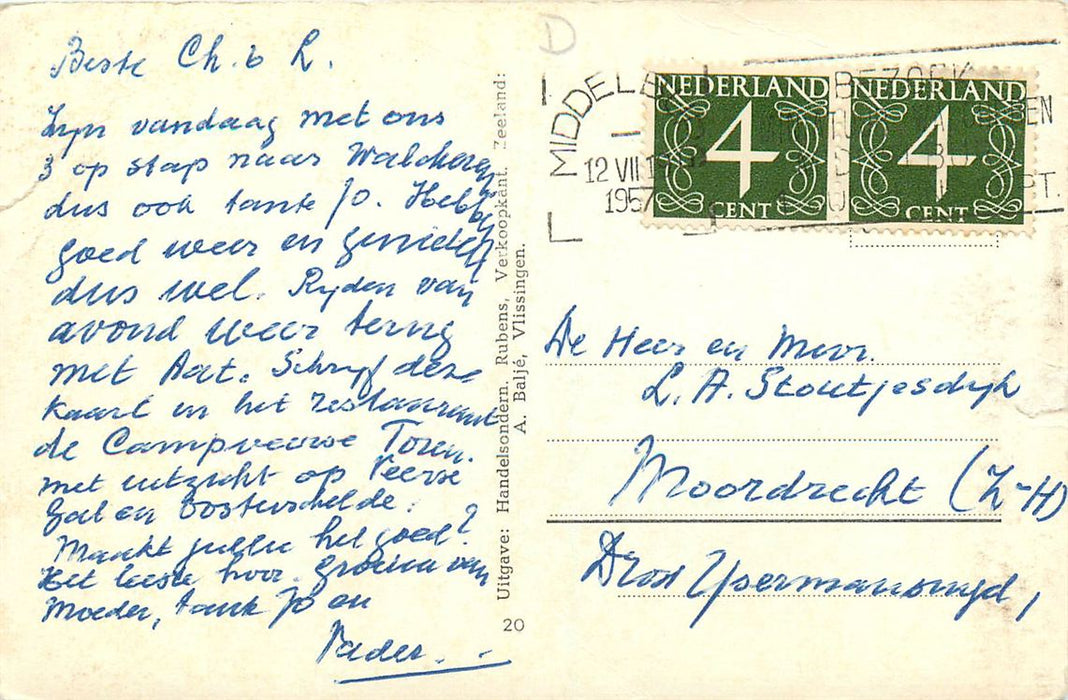 Beste Ch. & L.
Zijn vandaag met ons
3 op stap naar Walcheren
dus ook tante Jo. Hebben
goed weer en genieten
dus wel. Ryden van
avond weer terug
met Aat. Schryf deze
kaart in het restaurant
de Campveerse Toren.
met uitzicht op Veerse
Gat en Oosterschelde.
Maakt jullie het goed?
Het beste hoor. groeten van
Moeder, tante Jo en
Vader.
Uitgave: Handelsondern. Rubens, Verkoopkant. Zeeland:
A. Baljé, Vlissingen.
20
D
MIDDELB
12 VII
1957
BEZOEK
NEDERLAND
4
CENT
NEDERLAND
4
CENT
De Heer en Mevr.
L. A. Stoutjesdyk
Moordrecht (Z-H)